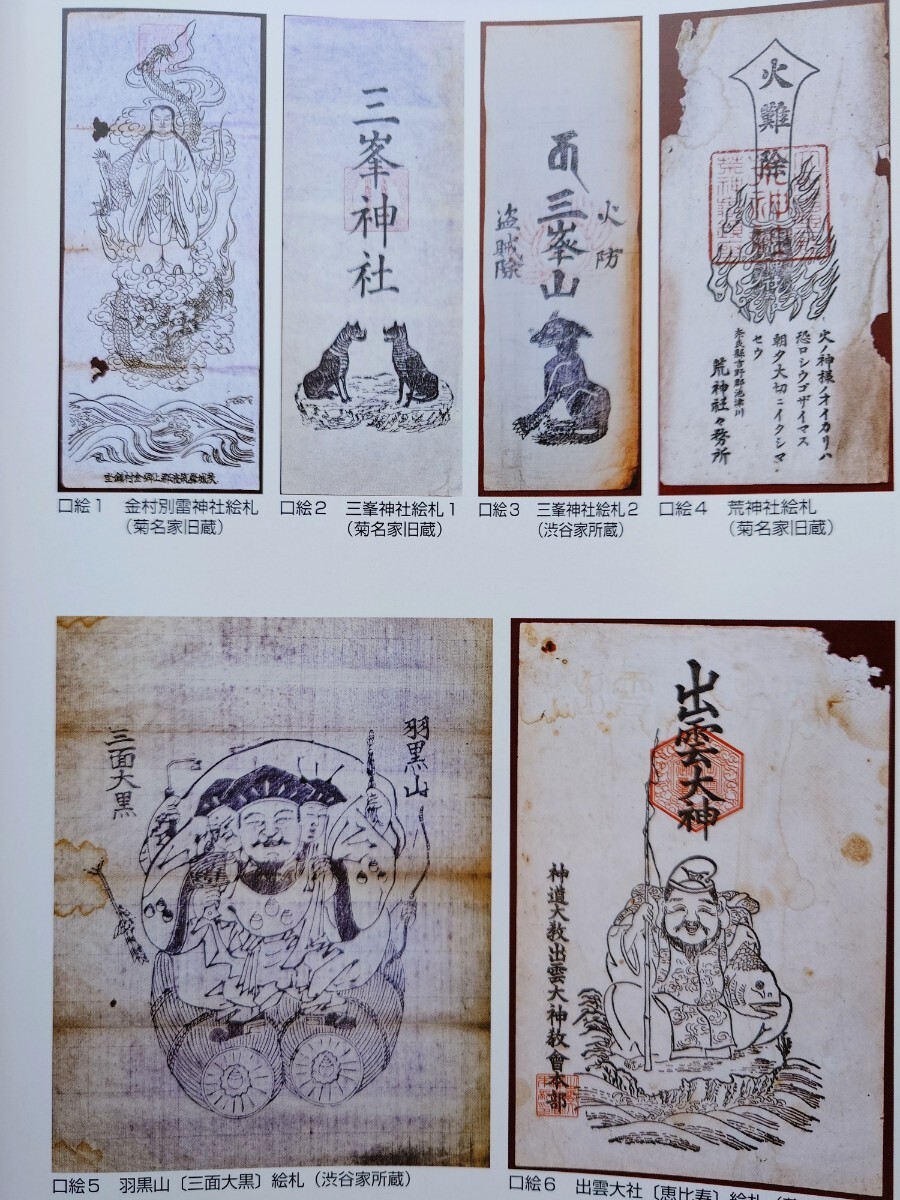 茨城県筑波郡上郷金村鎮座
口絵1 金村別雷神社絵札
(菊名家旧蔵)
三峯神社
口絵2 三峯神社絵札1
(菊名家旧蔵)
火防
三峯山
盗賊除
口絵3 三峯神社絵札2
(渋谷家所蔵)
火難除
火ノ神様ノオイカリハ
恐ロシウゴザイマス
朝夕大切ニイタシマ
セウ
奈良縣吉野郡池津川
荒神社々務所
口絵4 荒神社絵札
(菊名家旧蔵)
羽黒山
三面大黒
口絵5 羽黒山〔三面大黒〕絵札(渋谷家所蔵)
出雲大神
神道大教出雲大神教會本部
口絵6 出雲大社〔恵比寿〕絵札